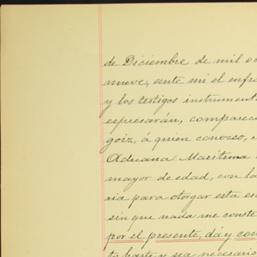 de Diciembre de mil o
nueve, ante mi el infra
y los testigos instrument
espresarán, comparec
goiz, á quien conosco,
Aduana Maritima
mayor de edad, con la
ria para otorgar esta es
sin que nada me conste
por el presente, dá y con